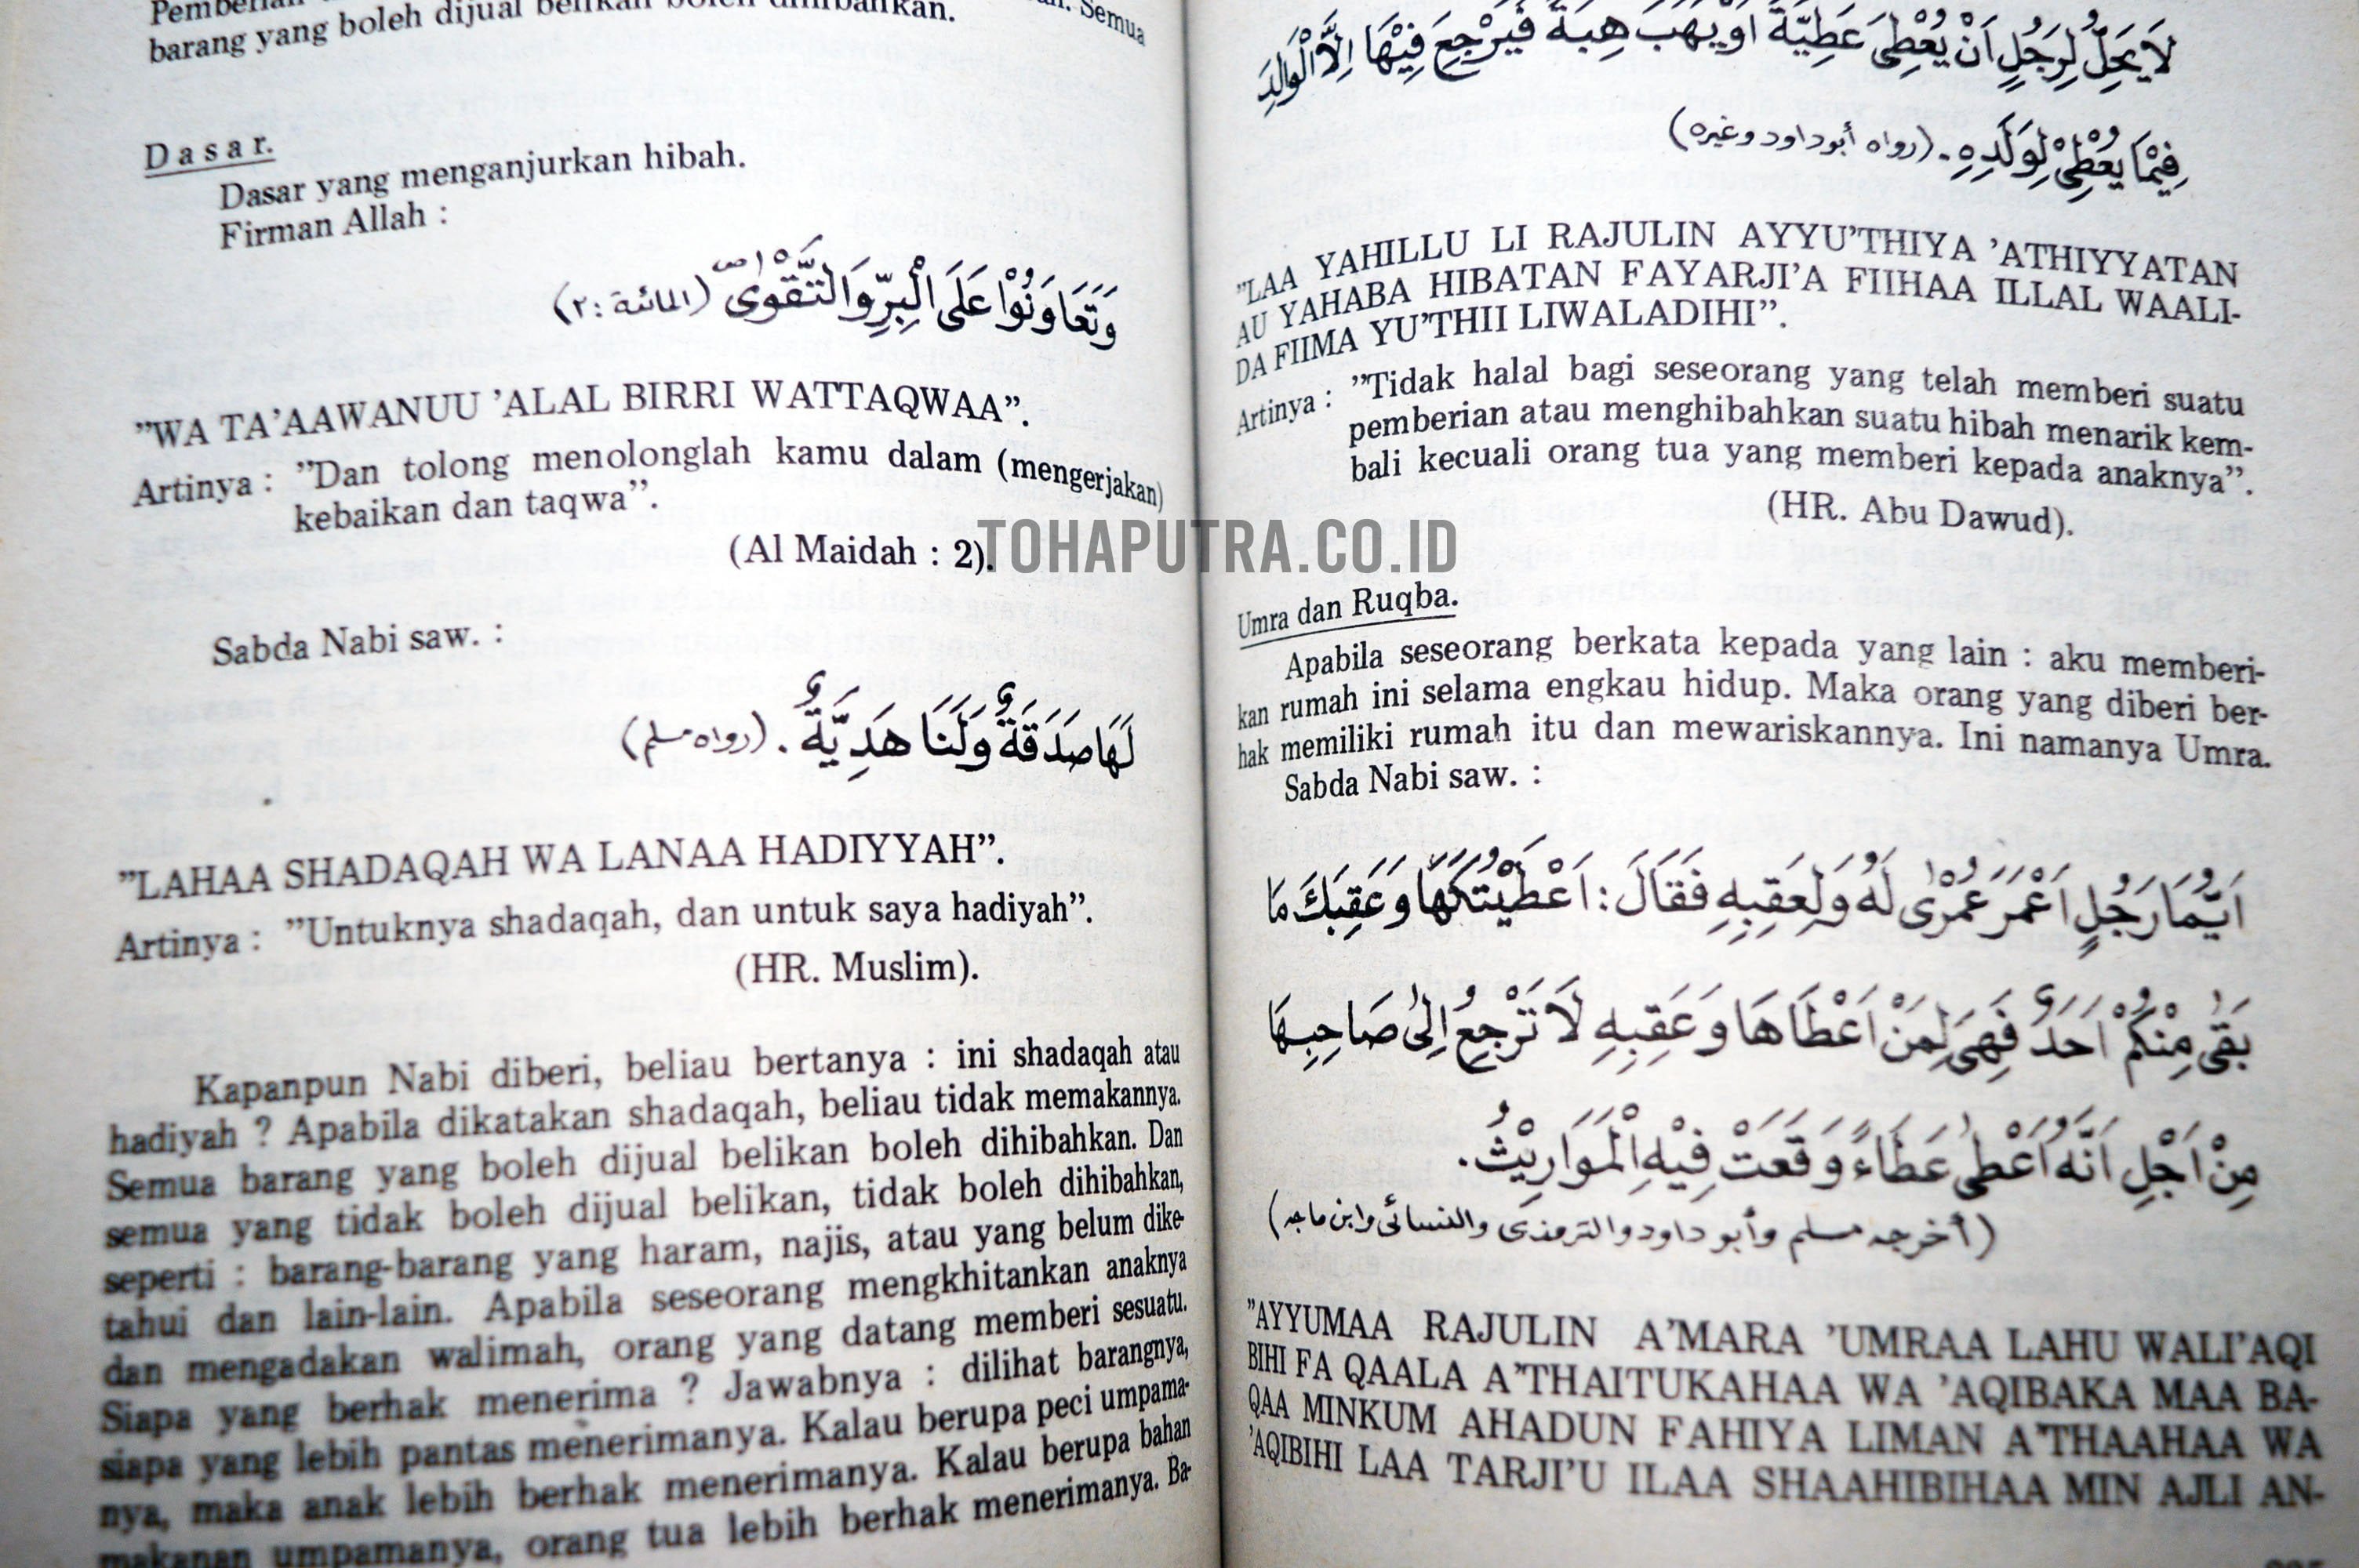 barang yang boleh dijual belikan boleh dihibahkan.
Semua
Dasar.
Dasar yang menganjurkan hibah.
Firman Allah :
وَتَعَاوَنُوْا عَلَى الْبِرِّ وَالتَّقْوٰى (المائدة : ٢)
”WA TA’AAWANUU ’ALAL BIRRI WATTAQWAA”.
Artinya : ”Dan tolong menolonglah kamu dalam (mengerjakan)
kebaikan dan taqwa”.
(Al Maidah : 2).
Sabda Nabi saw. :
لَهَا صَدَقَةٌ وَلَنَا هَدِيَّةٌ . (رواه مسلم)
”LAHAA SHADAQAH WA LANAA HADIYYAH”.
Artinya : ”Untuknya shadaqah, dan untuk saya hadiyah”.
(HR. Muslim).
Kapanpun Nabi diberi, beliau bertanya : ini shadaqah atau
hadiyah ? Apabila dikatakan shadaqah, beliau tidak memakannya.
Semua barang yang boleh dijual belikan boleh dihibahkan. Dan
semua yang tidak boleh dijual belikan, tidak boleh dihibahkan,
seperti : barang-barang yang haram, najis, atau yang belum dike-
tahui dan lain-lain. Apabila seseorang mengkhitankan anaknya
dan mengadakan walimah, orang yang datang memberi sesuatu.
Siapa yang berhak menerima ? Jawabnya : dilihat barangnya,
siapa yang lebih pantas menerimanya. Kalau berupa peci umpama-
nya, maka anak lebih berhak menerimanya. Kalau berupa bahan
makanan umpamanya, orang tua lebih berhak menerimanya. Ba-
TOHAPUTRA.CO.ID
لَا يَحِلُّ لِرَجُلٍ اَنْ يُعْطِىَ عَطِيَّةً اَوْ يَهَبَ هِبَةً فَيَرْجِعَ فِيْهَا اِلَّا الْوَالِدَ
فِيْمَا يُعْطِىْ لِوَلَدِهِ . (رواه أبو داود وغيره)
”LAA YAHILLU LI RAJULIN AYYU’THIYA ’ATHIYYATAN
AU YAHABA HIBATAN FAYARJI’A FIIHAA ILLAL WAALI-
DA FIIMA YU’THII LIWALADIHI”.
Artinya : ”Tidak halal bagi seseorang yang telah memberi suatu
pemberian atau menghibahkan suatu hibah menarik kem-
bali kecuali orang tua yang memberi kepada anaknya”.
(HR. Abu Dawud).
Umra dan Ruqba.
Apabila seseorang berkata kepada yang lain : aku memberi-
kan rumah ini selama engkau hidup. Maka orang yang diberi ber-
hak memiliki rumah itu dan mewariskannya. Ini namanya Umra.
Sabda Nabi saw. :
اَيُّمَا رَجُلٍ اَعْمَرَ عُمْرٰى لَهُ وَلِعَقِبِهِ فَقَالَ : اَعْطَيْتُكَهَا وَعَقِبَكَ مَا
بَقٰى مِنْكُمْ اَحَدٌ فَهِىَ لِمَنْ اَعْطَاهَا وَعَقِبِهِ لَا تَرْجِعُ اِلٰى صَاحِبِهَا
مِنْ اَجْلِ اَنَّهُ اَعْطٰى عَطَاءً وَقَعَتْ فِيْهِ الْمَوَارِيْثُ .
(أخرجه مسلم وأبو داود والترمذى والنسائى وابن ماجه)
”AYYUMAA RAJULIN A’MARA ’UMRAA LAHU WALI’AQI
BIHI FA QAALA A’THAITUKAHAA WA ’AQIBAKA MAA BA-
QAA MINKUM AHADUN FAHIYA LIMAN A’THAAHAA WA
’AQIBIHI LAA TARJI’U ILAA SHAAHIBIHAA MIN AJLI AN-